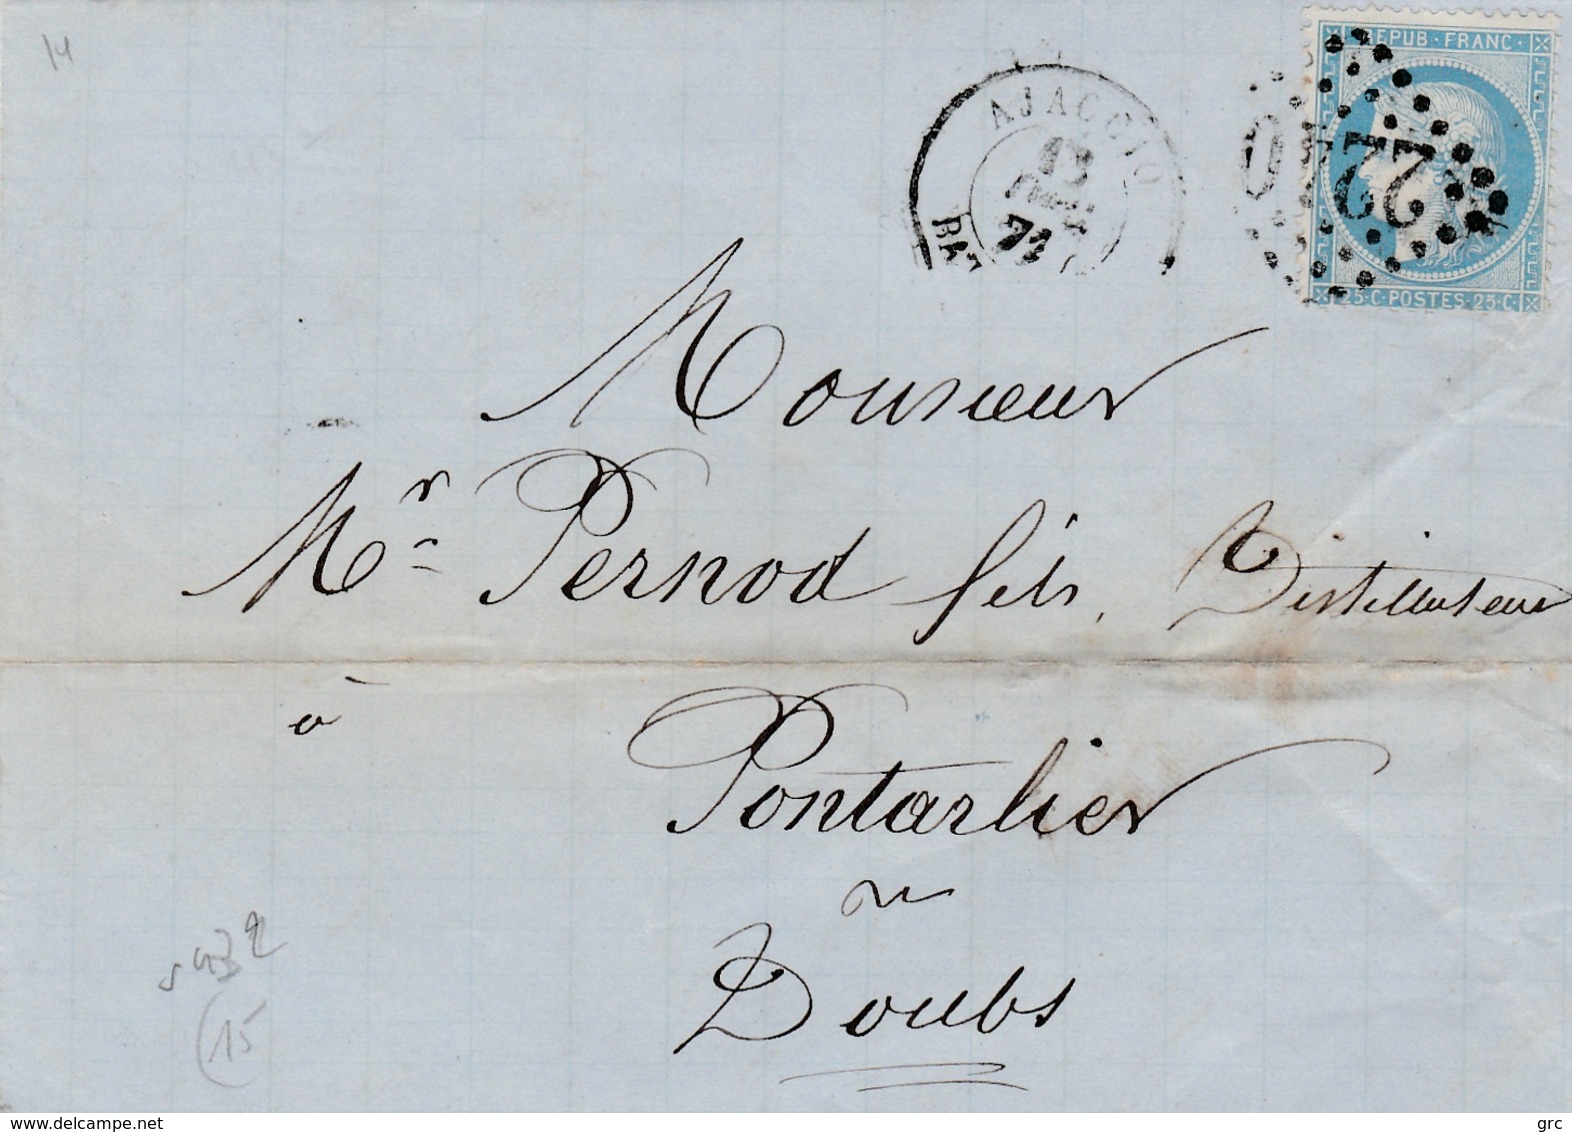 14
REPUB · FRANC ·
2240
25·C·POSTES·25·C·
AJACCIO
71
Monsieur
Mr Pernod fils, Distillateur
à
Pontarlier
Doubs
432
(15
www.delcampe.net
grc